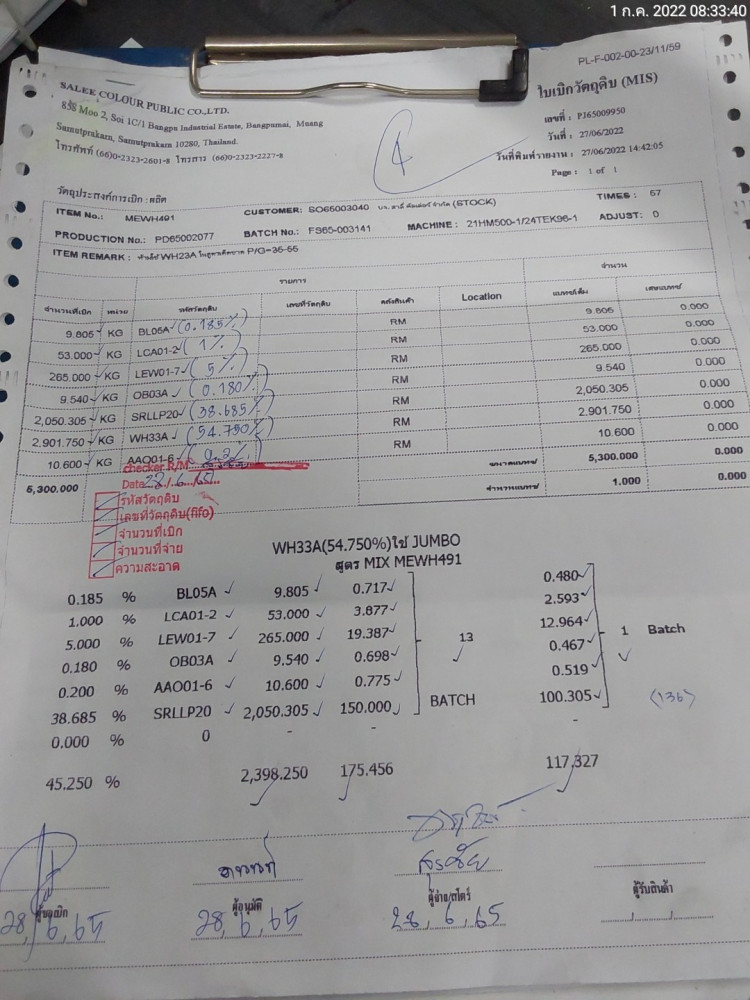 1 ก.ค. 2022 08:33:40
PL-F-002-00-23/11/59
SALEE COLOUR PUBLIC CO.,LTD.
858 Moo 2, Soi 1C/1 Bangpu Industrial Estate, Bangpumai, Muang
Samutprakarn, Samutprakarn 10280, Thailand.
โทรศัพท์ (66)0-2323-2601-8 โทรสาร (66)0-2323-2227-8
ใบเบิกวัตถุดิบ (MIS)
เลขที่ : PJ65009950
วันที่ : 27/06/2022
วันที่พิมพ์รายงาน : 27/06/2022 14:42:05
Page : 1 of 1
วัตถุประสงค์การเบิก : ผลิต
ITEM No.: MEWH491 CUSTOMER: SO65003040 (STOCK) TIMES : 57
PRODUCTION No.: PD65002077 BATCH No.: FS65-003141 MACHINE : 21HM500-1/24TEK96-1 ADJUST: 0
ITEM REMARK : WH23A P/G=35-55
รายการ จำนวน
จำนวนที่เบิก หน่วย รหัสวัตถุดิบ เลขที่วัตถุดิบ คลังสินค้า Location แบทช์เต็ม เศษแบทช์
9.805 KG BL05A (0.185%) RM 9.805 0.000
53.000 KG LCA01-2 (1%) RM 53.000 0.000
265.000 KG LEW01-7 (5%) RM 265.000 0.000
9.540 KG OB03A (0.180%) RM 9.540 0.000
2,050.305 KG SRLLP20 (38.685%) RM 2,050.305 0.000
2,901.750 KG WH33A (54.750%) RM 2,901.750 0.000
10.600 KG AAO01-6 (0.2%) RM 10.600 0.000
5,300.000 ขนาดแบทช์ 5,300.000 0.000
จำนวนแบทช์ 1.000 0.000
checker R/M
Date 22/6/65
รหัสวัตถุดิบ
เลขที่วัตถุดิบ(fifo)
จำนวนที่เบิก
จำนวนที่จ่าย
ความสะอาด
WH33A(54.750%)ใช้ JUMBO
สูตร MIX MEWH491
0.185 % BL05A 9.805 0.717 0.480
1.000 % LCA01-2 53.000 3.877 2.593
5.000 % LEW01-7 265.000 19.387 13 12.964 1 Batch
0.180 % OB03A 9.540 0.698 0.467
0.200 % AAO01-6 10.600 0.775 0.519
38.685 % SRLLP20 2,050.305 150.000 BATCH 100.305 (136)
0.000 % 0 - - -
45.250 % 2,398.250 175.456 117.327
ผู้ขอเบิก ผู้อนุมัติ ผู้จ่าย/สโตร์ ผู้รับสินค้า
28, 6, 65 28, 6, 65 28, 6, 65